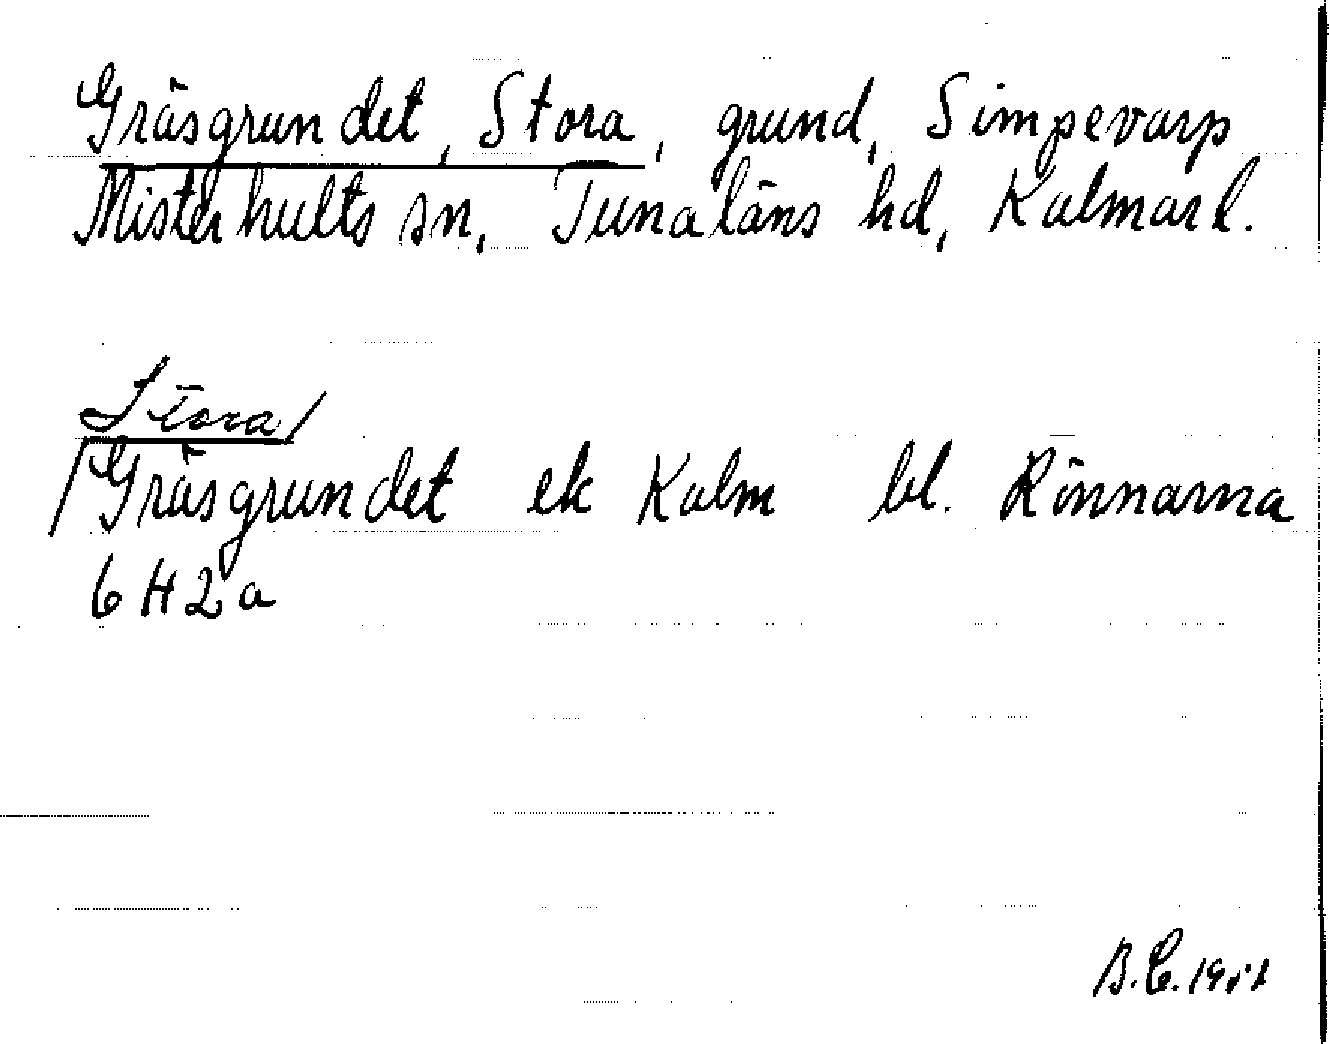 Gräsgrundet, Stora, grund, Simpevarp
Misterhults sn, Tunaläns hd, Kalmar l.
Stora/
/Gräsgrundet ek Kalm bl. Rönnarna
6H2a
B.C.